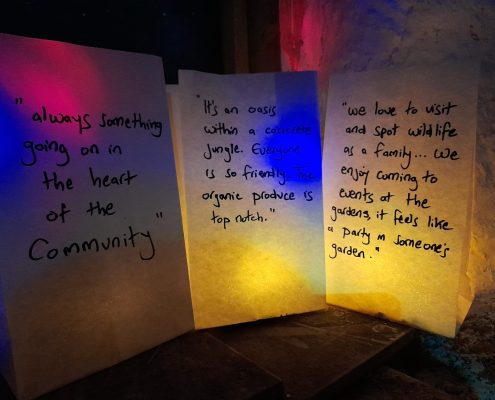 "always something
going on in
the heart
of the
Community"
"It's an oasis
within a concrete
jungle. Everyone
is so friendly. The
organic produce is
top notch."
"we love to visit
and spot wildlife
as a family... we
enjoy coming to
events at the
gardens, it feels like
a party in someone's
garden."